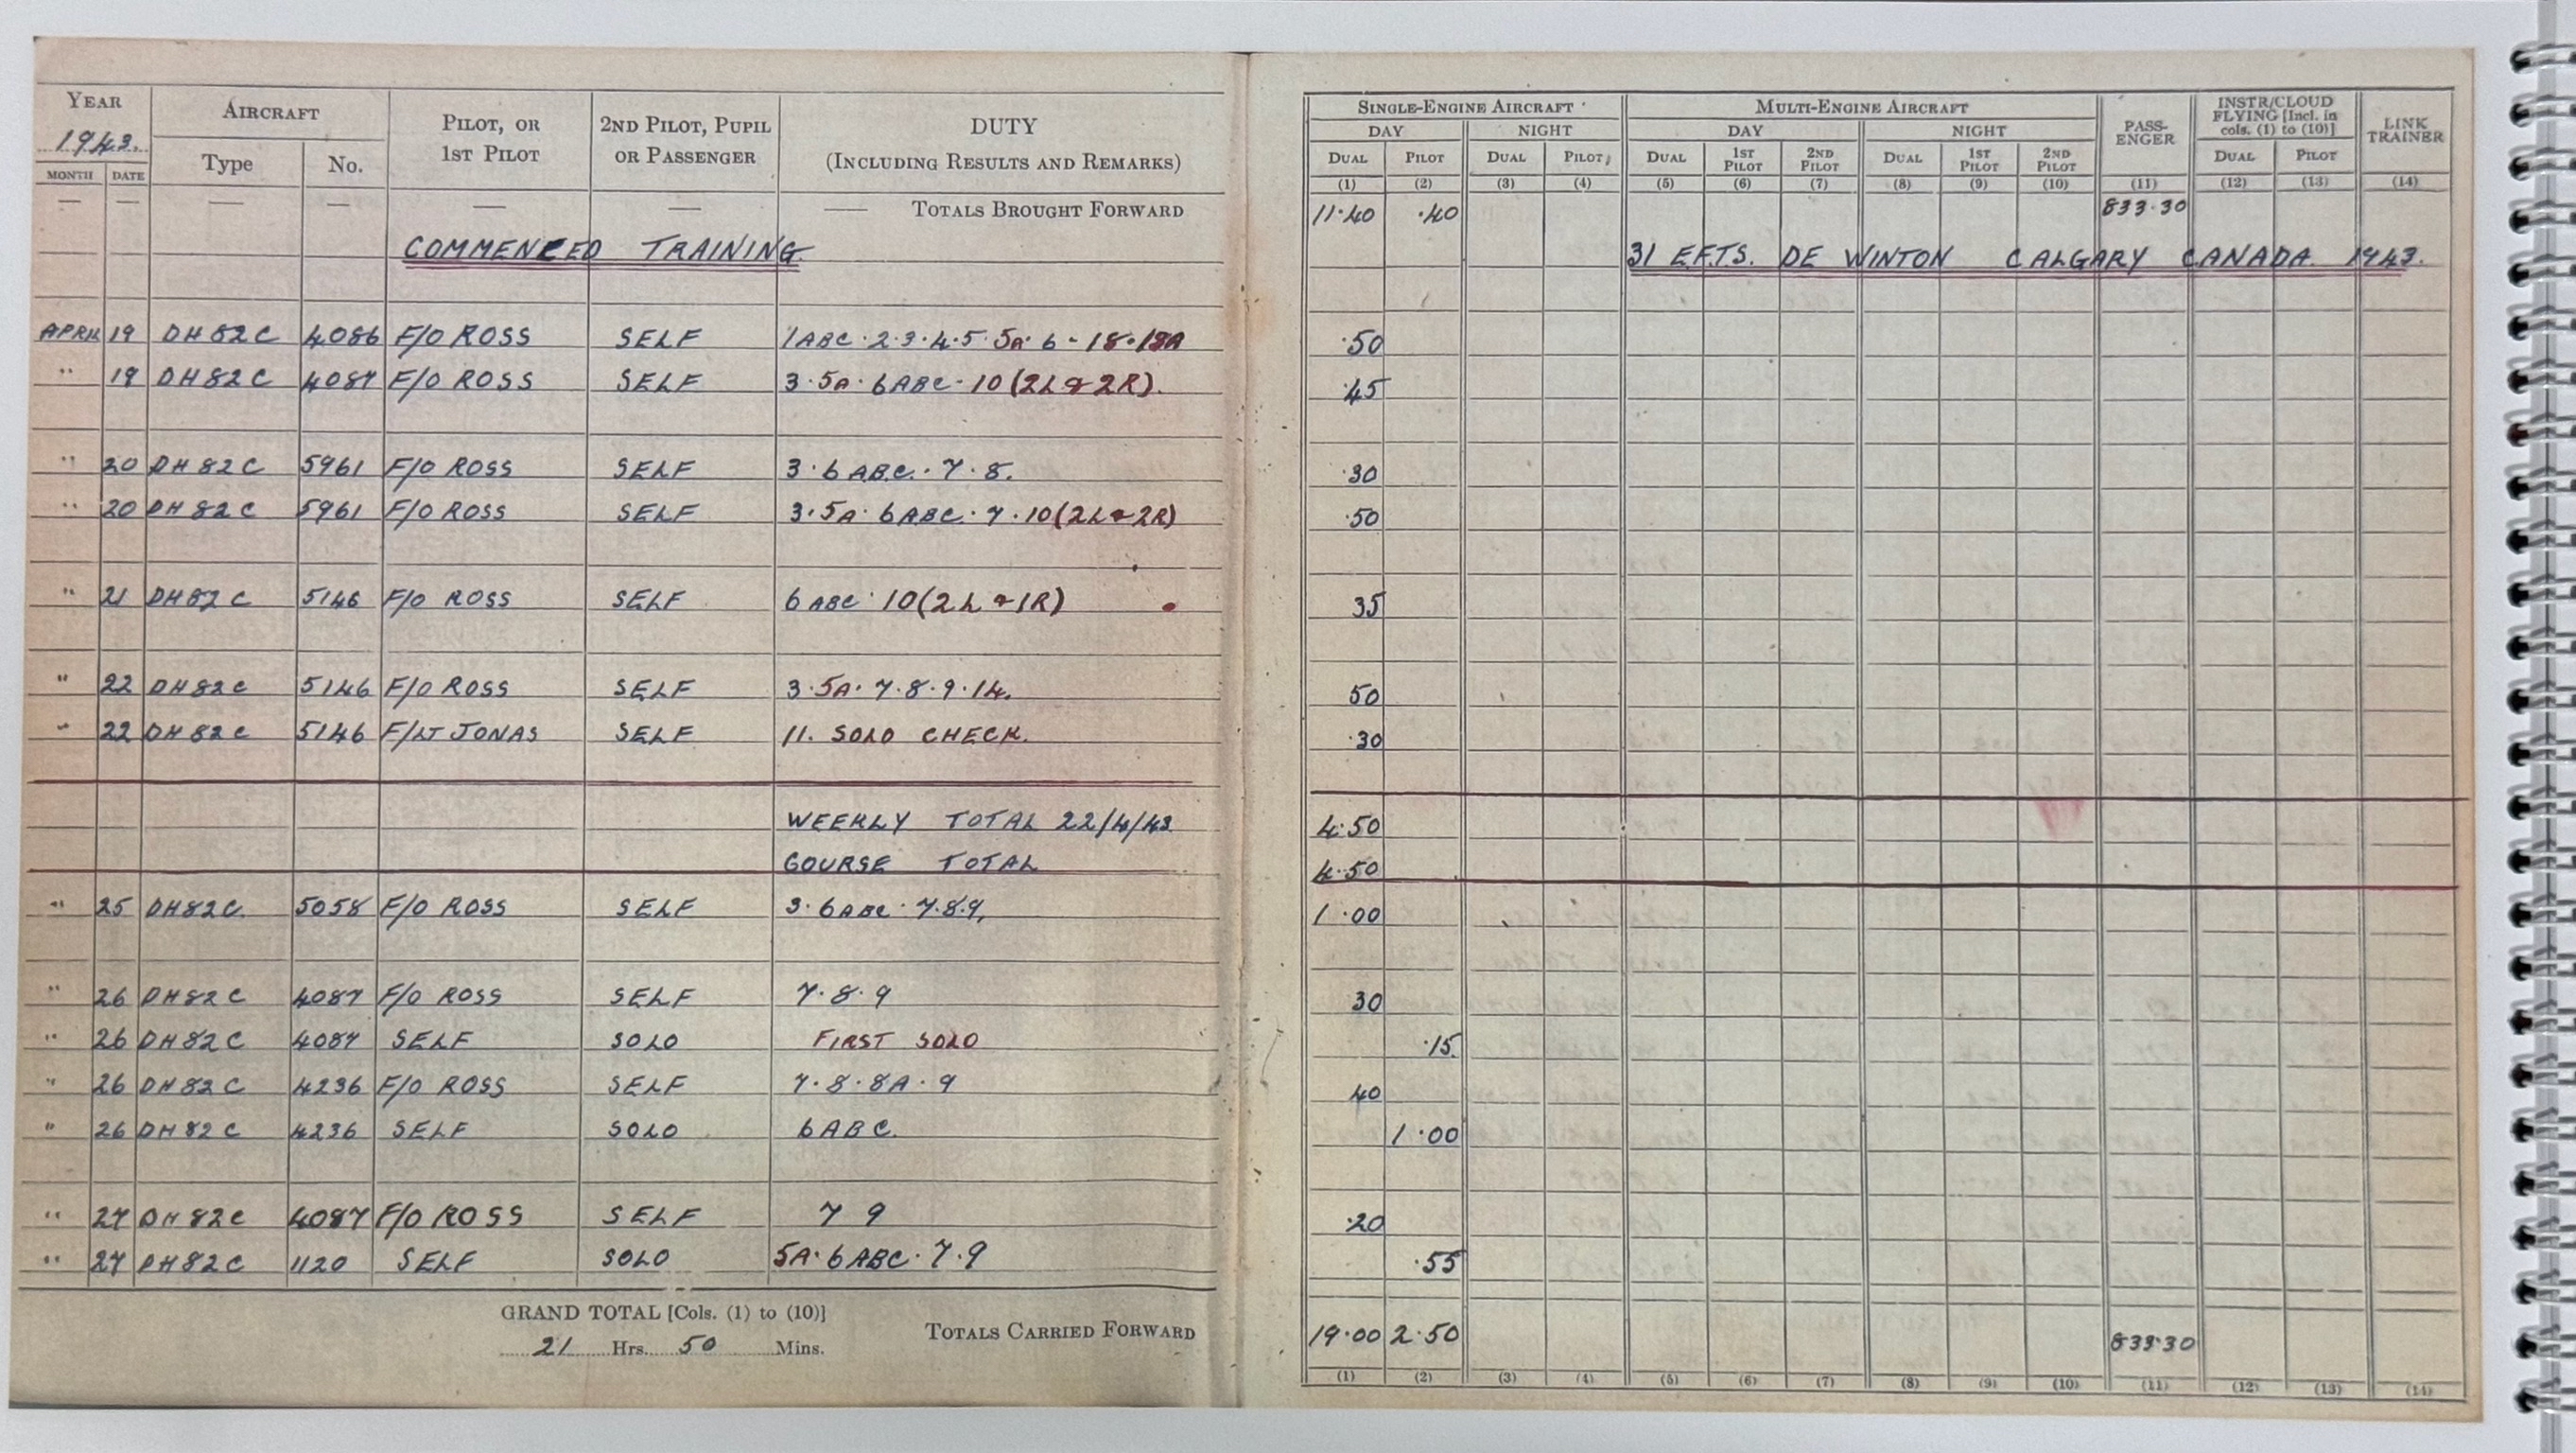 YEAR AIRCRAFT PILOT, OR 1ST PILOT 2ND PILOT, PUPIL OR PASSENGER DUTY (INCLUDING RESULTS AND REMARKS) SINGLE-ENGINE AIRCRAFT MULTI-ENGINE AIRCRAFT PASS-ENGER INSTR/CLOUD FLYING [Incl. in cols. (1) to (10)] LINK TRAINER
1943. Type No. DAY NIGHT DAY NIGHT
MONTH DATE DUAL PILOT DUAL PILOT DUAL 1ST PILOT 2ND PILOT DUAL 1ST PILOT 2ND PILOT DUAL PILOT
(1) (2) (3) (4) (5) (6) (7) (8) (9) (10) (11) (12) (13) (14)
— — — — — — — TOTALS BROUGHT FORWARD 11·40 ·40 833·30
COMMENCED TRAINING 31 E.F.T.S. DE WINTON CALGARY CANADA 1943.
APRIL 19 DH82C 4086 F/O ROSS SELF 1ABC·2·3·4·5·5A·6-18·18A ·50
" 19 DH82C 4087 F/O ROSS SELF 3·5A·6ABC·10(2L & 2R). ·45
" 20 DH82C 5961 F/O ROSS SELF 3·6ABC·7·8. ·30
" 20 DH82C 5961 F/O ROSS SELF 3·5A·6ABC·7·10(2L & 2R) ·50
" 21 DH82C 5146 F/O ROSS SELF 6ABC·10(2L & 1R) 35
" 22 DH82C 5146 F/O ROSS SELF 3·5A·7·8·9·14. 50
" 22 DH82C 5146 F/LT JONAS SELF 11. SOLO CHECK. ·30
WEEKLY TOTAL 22/4/43 4·50
COURSE TOTAL 4·50
" 25 DH82C 5058 F/O ROSS SELF 3·6ABC·7·8·9, 1·00
" 26 DH82C 4087 F/O ROSS SELF 7·8·9 30
" 26 DH82C 4087 SELF SOLO FIRST SOLO ·15
" 26 DH82C 4236 F/O ROSS SELF 7·8·8A·9 40
" 26 DH82C 4236 SELF SOLO 6ABC. 1·00
" 27 DH82C 4087 F/O ROSS SELF 7 9 ·20
" 27 DH82C 1120 SELF SOLO 5A·6ABC·7·9 ·55
GRAND TOTAL [Cols. (1) to (10)]
21 Hrs. 50 Mins. TOTALS CARRIED FORWARD 19·00 2·50 833·30
(1) (2) (3) (4) (5) (6) (7) (8) (9) (10) (11) (12) (13) (14)